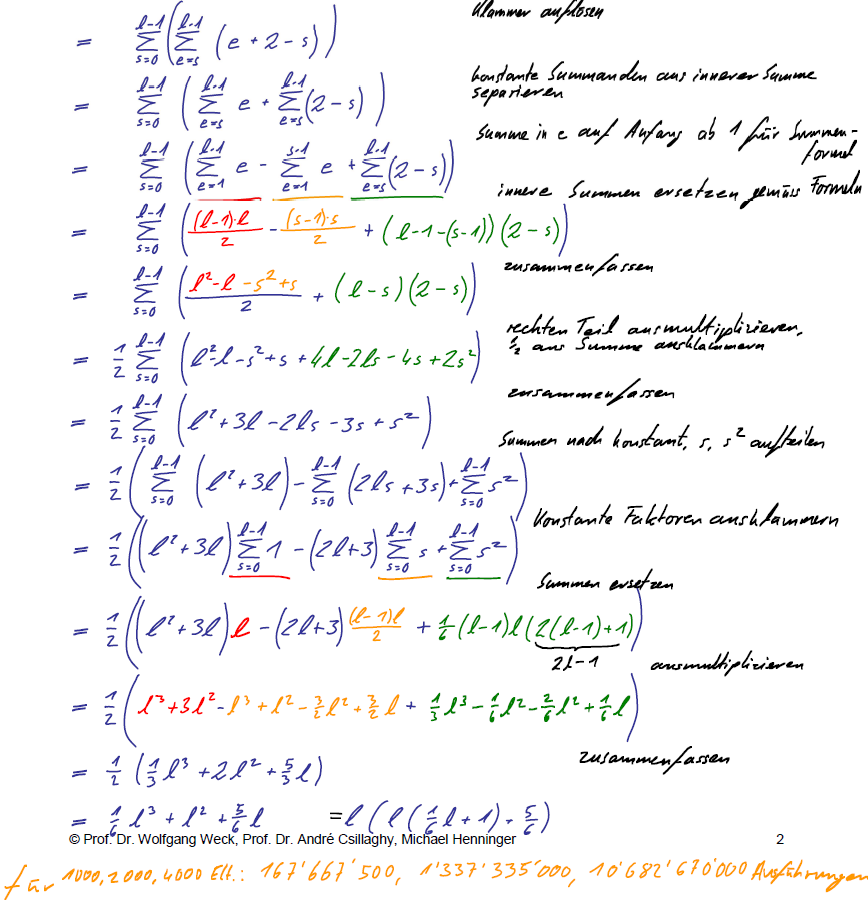 Klammer auflösen
= \sum_{s=0}^{l-1} ( \sum_{e=s}^{l-1} (e + 2 - s) )
konstante Summanden aus innerer Summe
separieren
= \sum_{s=0}^{l-1} ( \sum_{e=s}^{l-1} e + \sum_{e=s}^{l-1} (2 - s) )
Summe in e auf Anfang ab 1 für Summen-
formel
= \sum_{s=0}^{l-1} ( \sum_{e=1}^{l-1} e - \sum_{e=1}^{s-1} e + \sum_{e=s}^{l-1} (2 - s) )
innere Summen ersetzen gemäss Formeln
= \sum_{s=0}^{l-1} ( \frac{(l-1)·l}{2} - \frac{(s-1)·s}{2} + (l-1-(s-1)) (2 - s) )
zusammenfassen
= \sum_{s=0}^{l-1} ( \frac{l² - l - s² + s}{2} + (l - s) (2 - s) )
rechten Teil ausmultiplizieren,
½ aus Summe ausklammern
= \frac{1}{2} \sum_{s=0}^{l-1} ( l² - l - s² + s + 4l - 2ls - 4s + 2s² )
zusammenfassen
= \frac{1}{2} \sum_{s=0}^{l-1} ( l² + 3l - 2ls - 3s + s² )
Summen nach konstant, s, s² aufteilen
= \frac{1}{2} ( \sum_{s=0}^{l-1} (l² + 3l) - \sum_{s=0}^{l-1} (2ls + 3s) + \sum_{s=0}^{l-1} s² )
Konstante Faktoren ausklammern
= \frac{1}{2} ( (l² + 3l) \sum_{s=0}^{l-1} 1 - (2l+3) \sum_{s=0}^{l-1} s + \sum_{s=0}^{l-1} s² )
Summen ersetzen
= \frac{1}{2} ( (l² + 3l) l - (2l+3) \frac{(l-1)l}{2} + \frac{1}{6} (l-1) l (2(l-1)+1) )
2l-1
ausmultiplizieren
= \frac{1}{2} ( l³ + 3l² - l³ + l² - \frac{3}{2} l² + \frac{3}{2} l + \frac{1}{3} l³ - \frac{1}{6} l² - \frac{2}{6} l² + \frac{1}{6} l )
zusammenfassen
= \frac{1}{2} ( \frac{1}{3} l³ + 2l² + \frac{5}{3} l )
= \frac{1}{6} l³ + l² + \frac{5}{6} l = l ( l ( \frac{1}{6} l + 1 ) + \frac{5}{6} )
© Prof. Dr. Wolfgang Weck, Prof. Dr. André Csillaghy, Michael Henninger 2
für 1000, 2000, 4000 Elt.: 167'667'500, 1'337'335'000, 10'682'670'000 Ausführungen